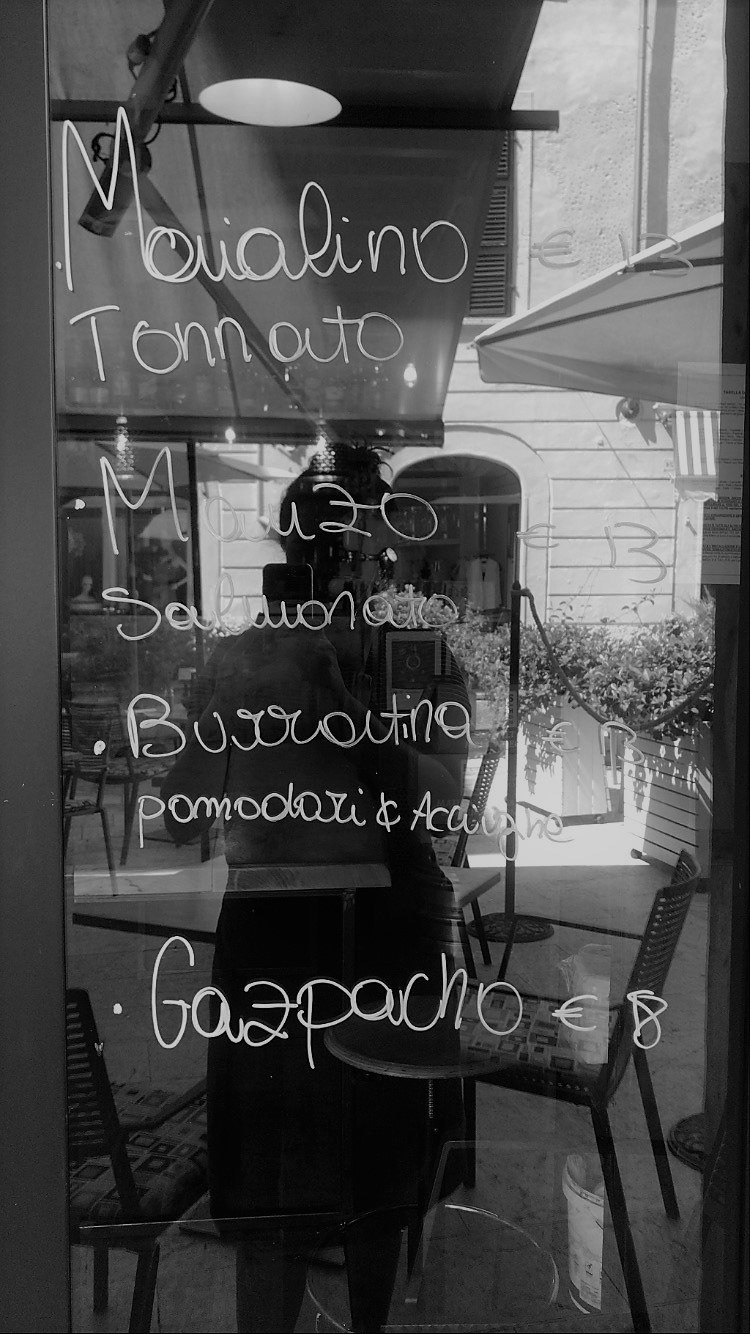 . Maialino € 13
Tonnato
. Manzo € 13
Salmonato
. Burratina € 13
pomodori & Acciughe
. Gazpacho € 8